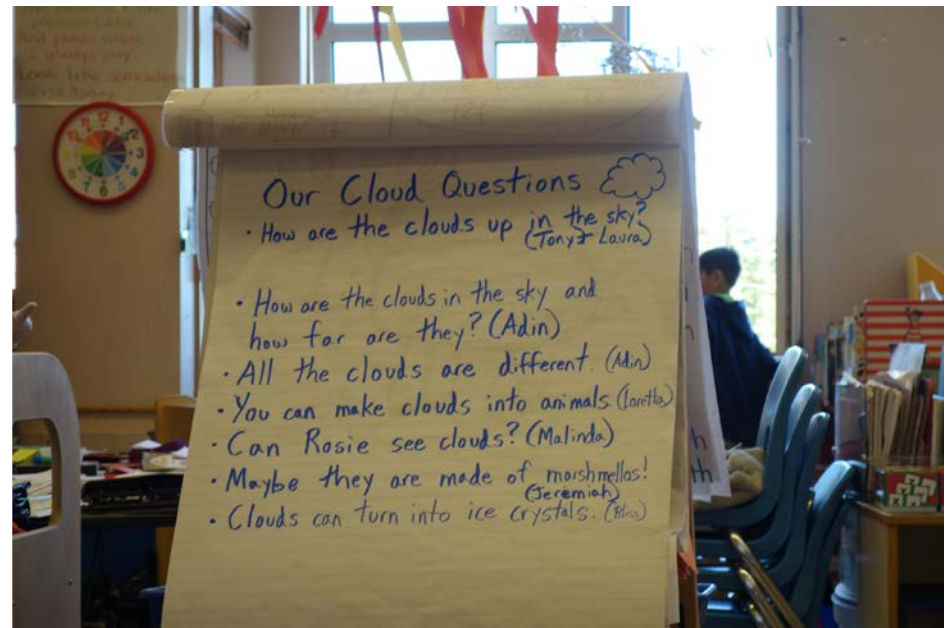 And places where
I always pray
Look like somewhere
Our Cloud Questions
• How are the clouds up in the sky?
(Tony & Laura)
• How are the clouds in the sky and
how far are they? (Adin)
• All the clouds are different. (Adin)
• You can make clouds into animals. (Loretta)
• Can Rosie see clouds? (Malinda)
• Maybe they are made of marshmellos!
(Jeremiah)
• Clouds can turn into ice crystals. (Bliss)